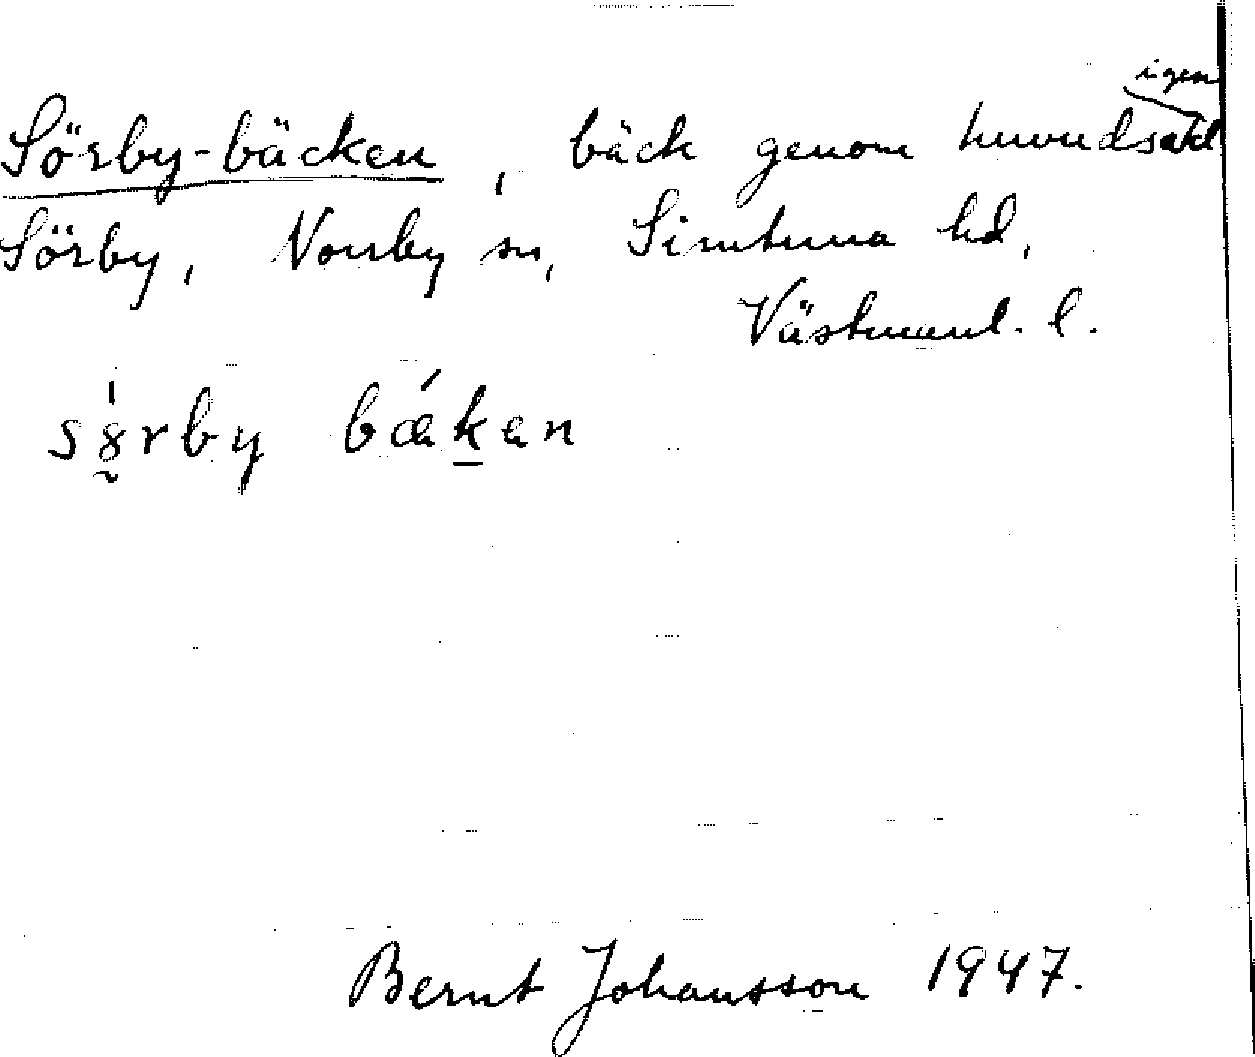 Sörby-bäcken, bäck genom huvudsakligen
Sörby, Nonrby sn, Simtuna hd,
Västmanl. l.
sö̀rby bǽken
Bernt Johansson 1947.